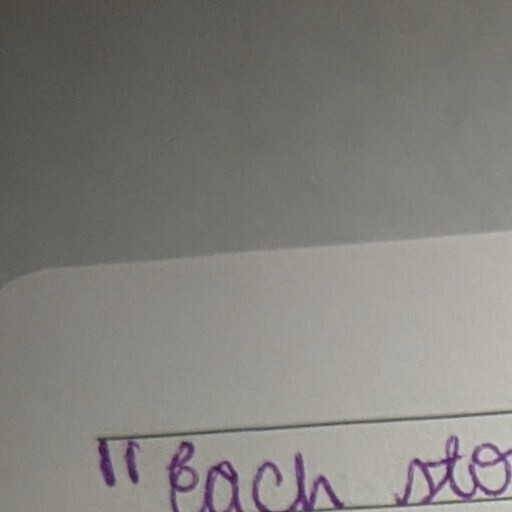 "Each sto